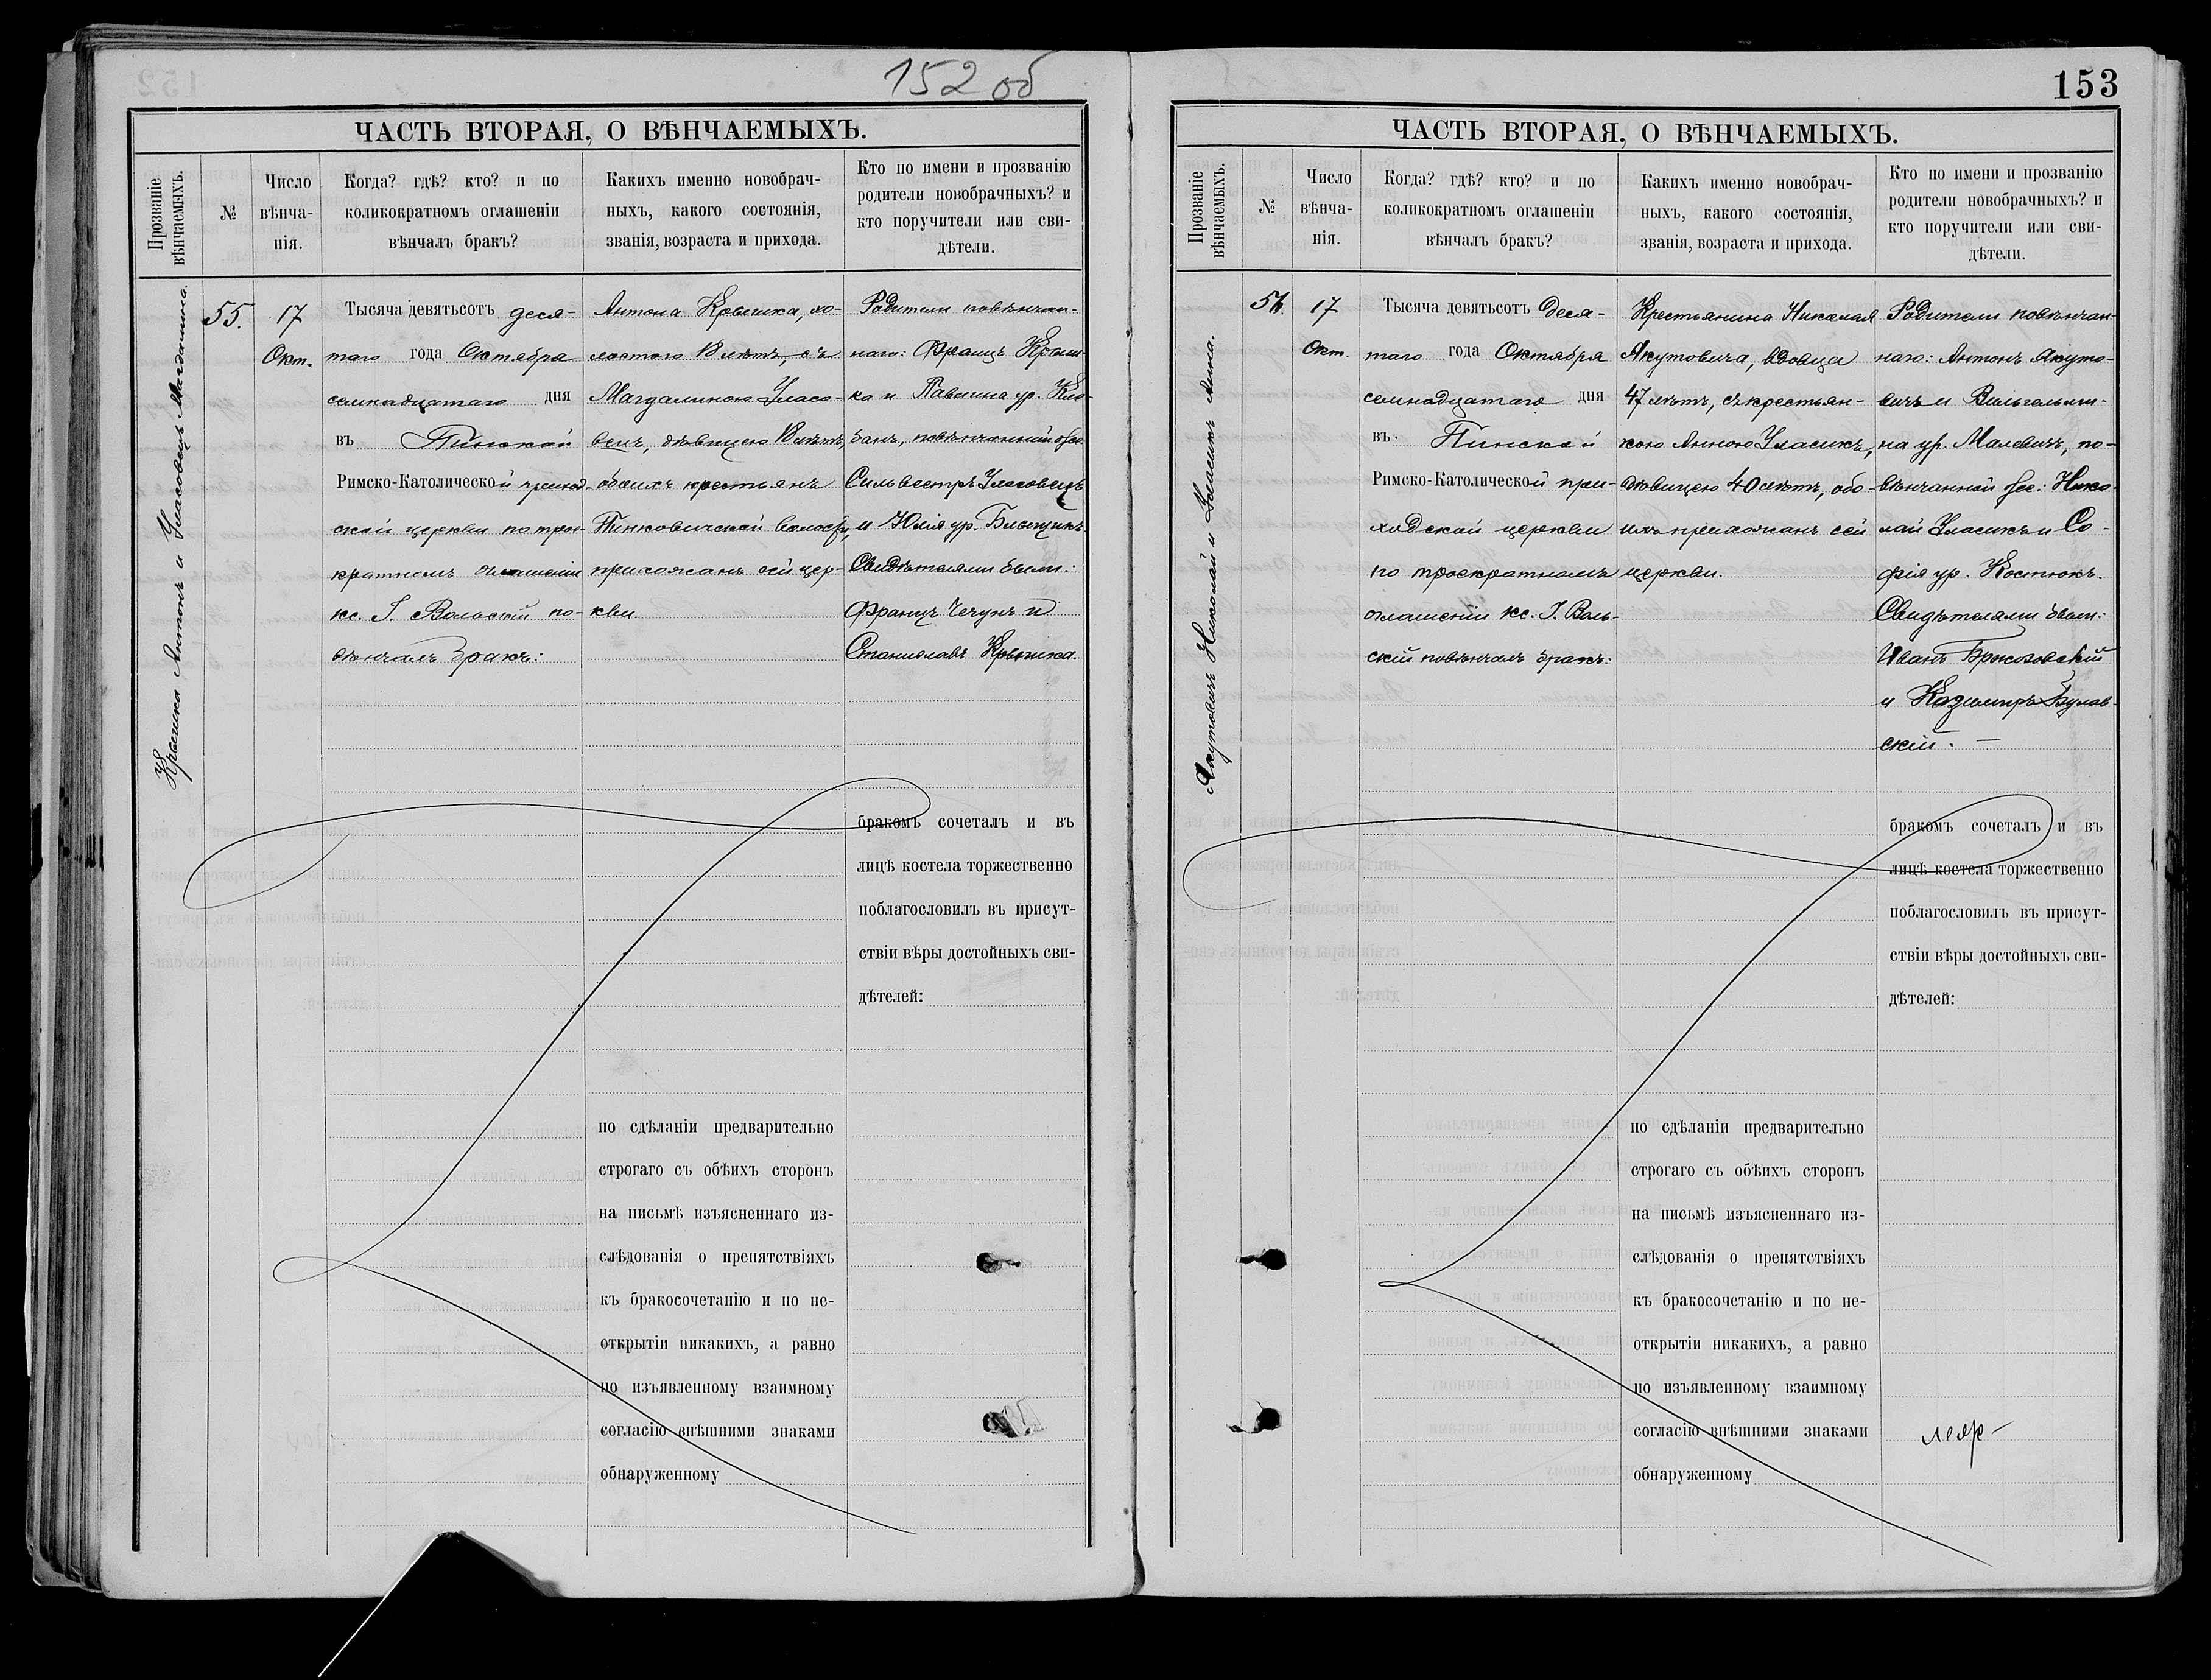 152 об
ЧАСТЬ ВТОРАЯ, О ВѢНЧАЕМЫХЪ.
Прозваніе
вѣнчаемыхъ.
№
Число
вѣнча-
нія.
Когда? гдѣ? кто? и по
коликократномъ оглашеніи
вѣнчалъ бракъ?
Какихъ именно новобрач-
ныхъ, какого состоянія,
званія, возраста и прихода.
Кто по имени и прозванію
родители новобрачныхъ? и
кто поручители или сви-
дѣтели.
Крышка Антонъ и Уласовецъ Магдалина.
55.
17
Окт.
Тысяча девятьсотъ деся-
таго года Октября
семнадцатаго дня
въ Пинской
Римско-Католической приход-
ской церкви по трое-
кратномъ оглашеніи
кс. І. Вольскій по-
вѣнчалъ бракъ:
Антона Крышка, хо-
лостого 18 лѣтъ, съ
Магдалиною Уласо-
вецъ, дѣвицею 18 лѣтъ,
обоихъ крестьянъ
Пинковичской волости,
прихожанъ сей цер-
кви
Родители повѣнчан-
наго: Францъ Крыш-
ка и Павлина ур.
повѣнчанной
Сильвестръ Уласовецъ
и Юлія ур.
Свидѣтелями были:
Францъ Чечунъ и
Станиславъ Крышка
бракомъ сочеталъ и въ
лицѣ костела торжественно
поблагословилъ въ присут-
ствіи вѣры достойныхъ сви-
дѣтелей:
по сдѣланіи предварительно
строгаго съ обѣихъ сторонъ
на письмѣ изъясненнаго из-
слѣдованія о препятствіяхъ
къ бракосочетанію и по не-
открытіи никакихъ, а равно
по изъявленному взаимному
согласію внѣшними знаками
обнаруженному
153
ЧАСТЬ ВТОРАЯ, О ВѢНЧАЕМЫХЪ.
Прозваніе
вѣнчаемыхъ.
№
Число
вѣнча-
нія.
Когда? гдѣ? кто? и по
коликократномъ оглашеніи
вѣнчалъ бракъ?
Какихъ именно новобрач-
ныхъ, какого состоянія,
званія, возраста и прихода.
Кто по имени и прозванію
родители новобрачныхъ? и
кто поручители или сви-
дѣтели.
Якутовичъ Николай и Уласикъ Анна.
56.
17
Окт.
Тысяча девятьсотъ Деся-
таго года Октября
семнадцатаго дня
въ Пинской
Римско-Католической при-
ходской церкви
по троекратномъ
оглашеніи кс. І. Воль-
скій повѣнчалъ бракъ:
Крестьянина Николая
Якутовича, вдовца
47 лѣтъ, съ крестьян-
кою Анною Уласикъ,
дѣвицею 40 лѣтъ, обо-
ихъ прихожанъ сей
церкви.
Родители повѣнчан-
наго: Антонъ Якуто-
вичъ и Вильгельми-
на ур. Малевичъ, по-
вѣнчанной Нико-
лай Уласикъ и Со-
фія ур. Костюкъ.
Свидѣтелями были:
Иванъ Брюзовскій
и Казимиръ Булав-
скій. —
бракомъ сочеталъ и въ
лицѣ костела торжественно
поблагословилъ въ присут-
ствіи вѣры достойныхъ сви-
дѣтелей:
по сдѣланіи предварительно
строгаго съ обѣихъ сторонъ
на письмѣ изъясненнаго из-
слѣдованія о препятствіяхъ
къ бракосочетанію и по не-
открытіи никакихъ, а равно
по изъявленному взаимному
согласію внѣшними знаками
обнаруженному